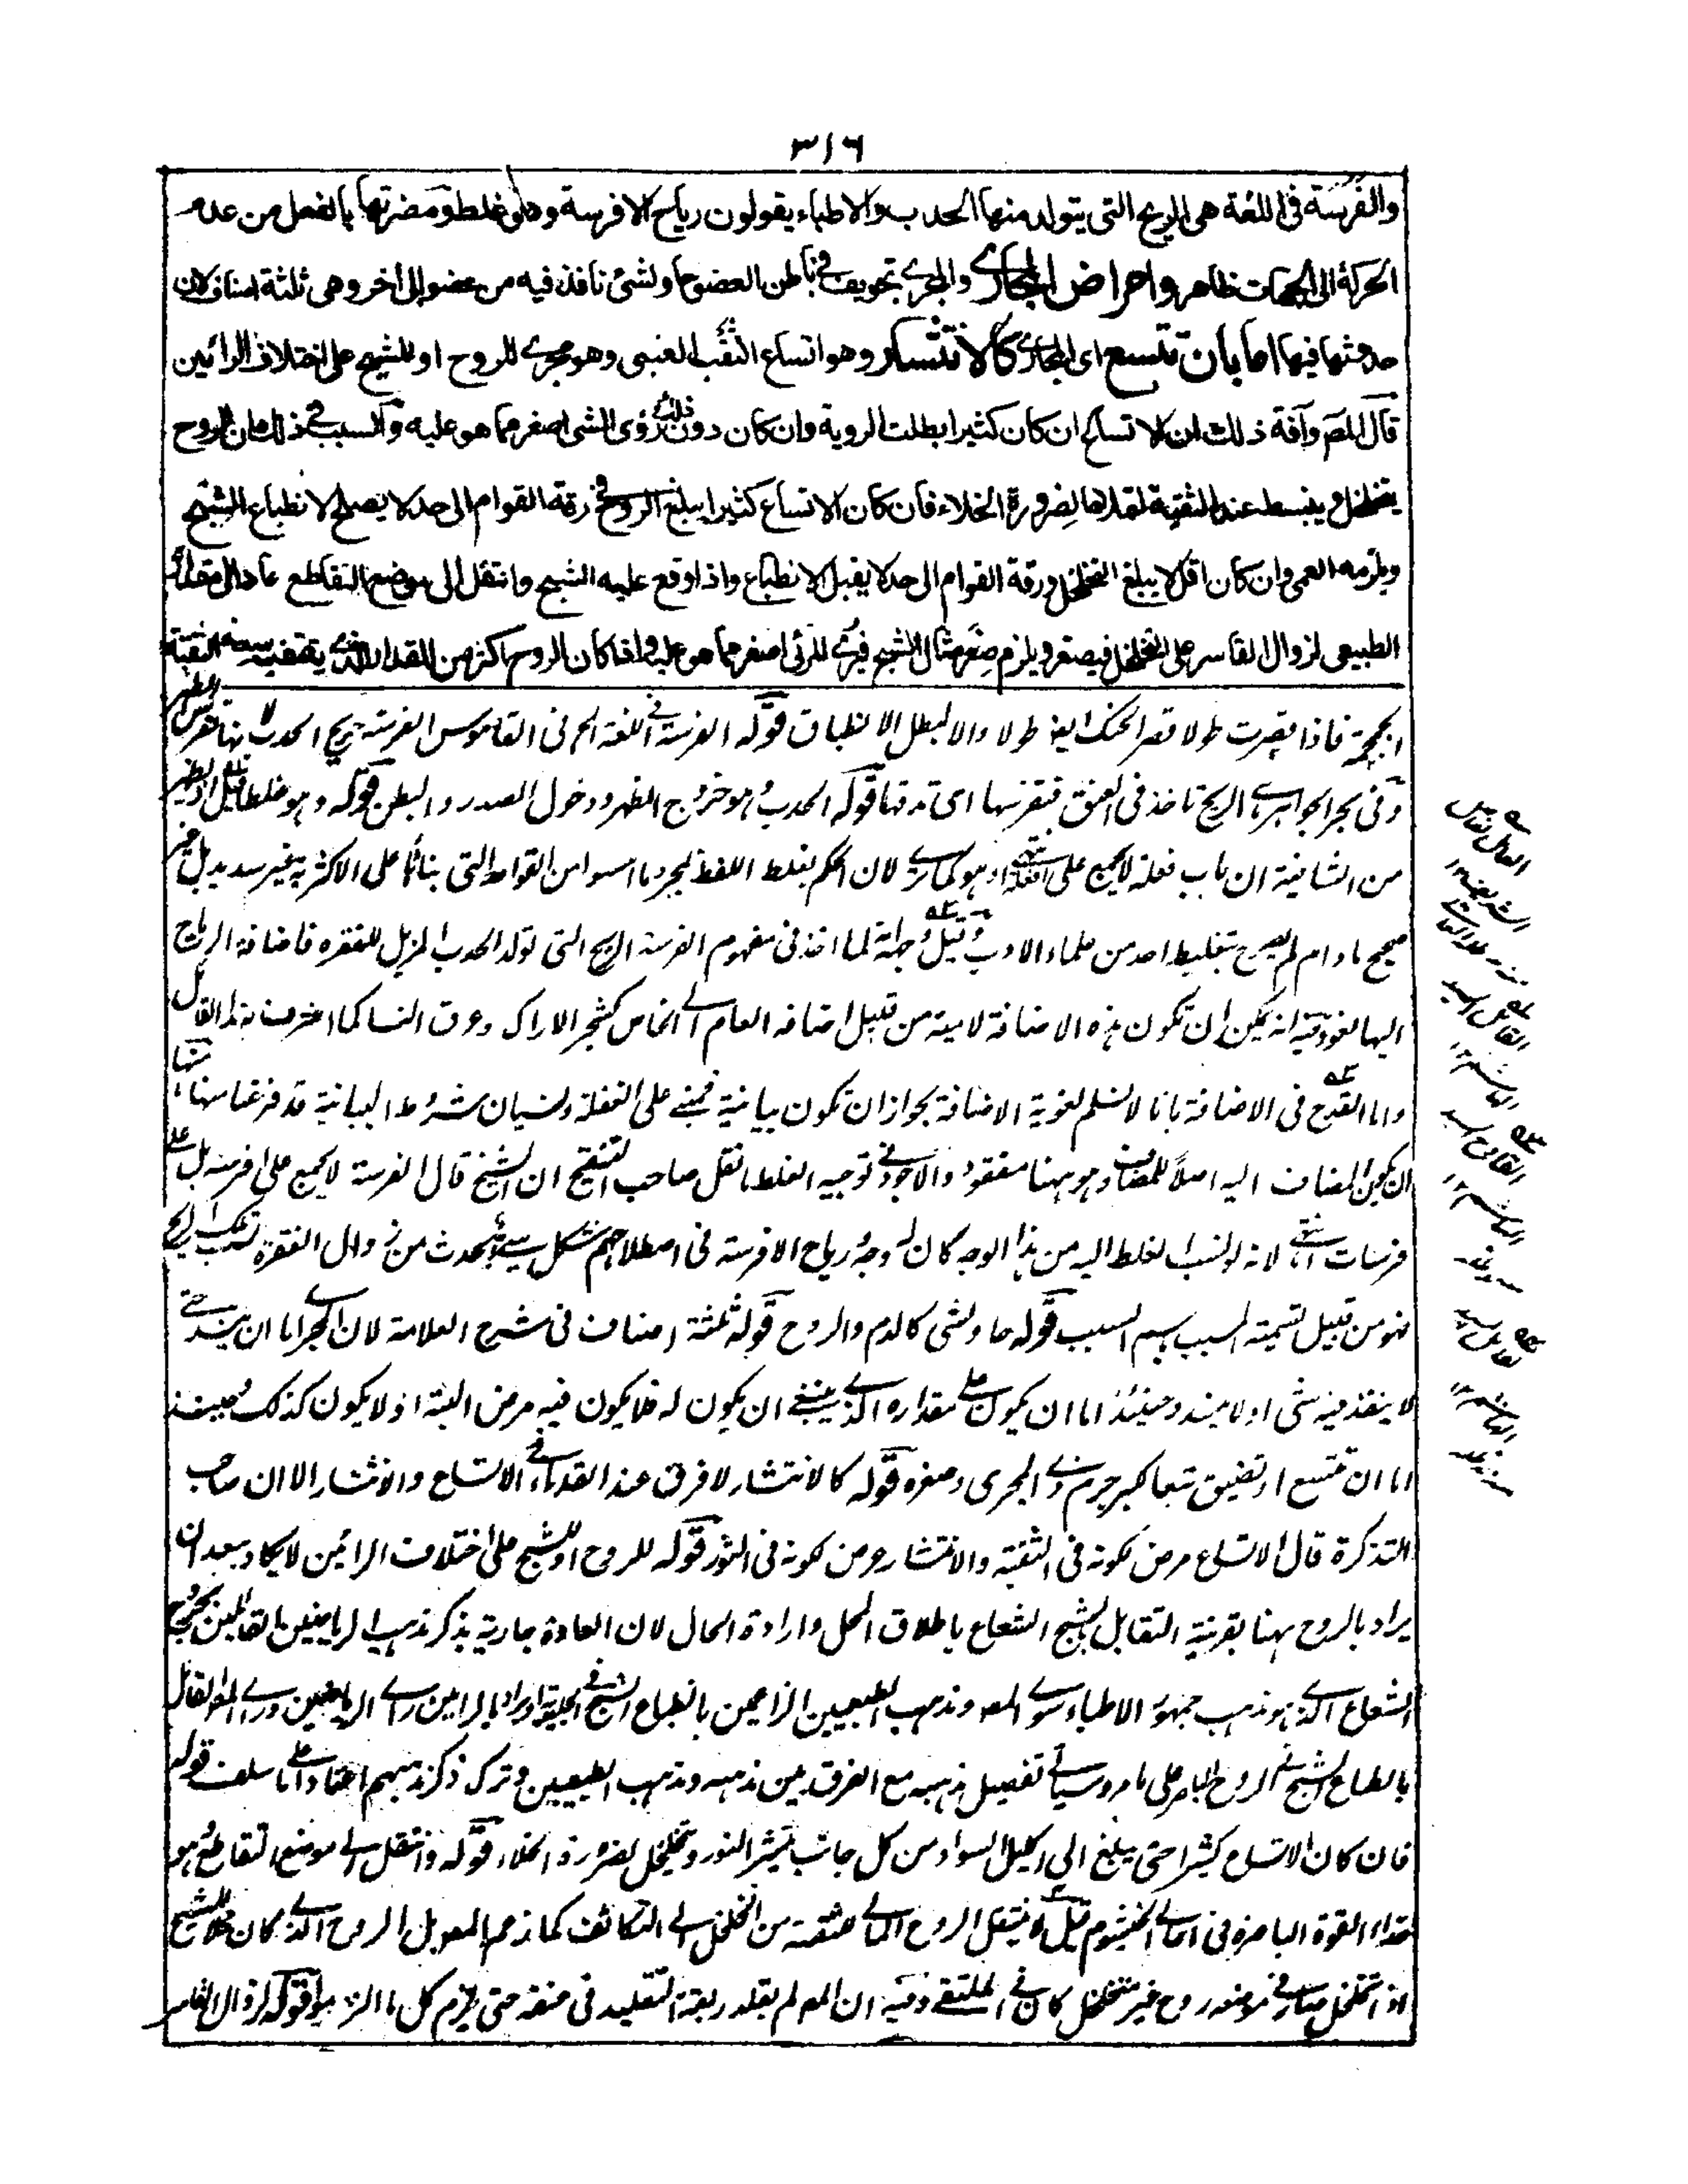 ٣١٦
والفرسة فى اللغة هى الريح التى يتولد منها الحدب والاطباء يقولون رياح الافرسة وهو غلط ومضرتها بالفعل من عدم
الحركة الى الجهات ظاهر وامراض المجارى والمجرى تجويف فى باطن العضو حاو لشئ نافذ فيه من عضو الى اخر وهى ثلثة اصناف لان
حدوثها فيها اما بان تتسع اى المجارى كالانتشار وهو اتساع الثقب العنبى وهو مجرى للروح او للشبح على اختلاف الرائيين
قال المص وآفة ذلك ان الاتساع ان كان كثيرا بطلت الروية وان كان دون ذلك رؤى الشئ اصغر مما هو عليه والسبب فى ذلك ان الروح
يتخلخل وينبسط عند الثقبة لضرورة الخلاء فان كان الاتساع كثيرا يبلغ الروح فى رقة القوام الى حد لا يصلح لانطباع الشبح
ويلزمه العمى وان كان اقل لا يبلغ التخلخل ورقة القوام الى حد لا يقبل الانطباع واذا وقع عليه الشبح وانتقل الى موضع التقاطع عاد الى مقداره
الطبيعى لزوال القاسر على التخلخل فيصغر ويلزم صغر مثال الشبح فيرى المرئى اصغر مما هو عليه واذا كان الروح اكثر من المقدار الذى يقتضيه سعة الثقبة
الجمجمة فاذا قصرت طولا قصر الحنك ايضا طولا والا لبطل الانطباق قوله الفرسة فى اللغة الخ فى القاموس الفرسة ريح الحدب لانها تفرس الظهر
وفى بحر الجواهر الريح تاخذ فى العنق فتفرسها اى تدقها قوله الحدب هو خروج الظهر ودخول الصدر والبطن قوله وهو غلط
من الشافية ان باب فعلة لا يجمع على افعلة انتهى وهو كما ترى لان الحكم بغلط اللفظ بمجرد ما اسسوا من القواعد التى بنائها على الاكثرية غير سديد بل غير
صحيح ما دام لم يصرح بتغليط احد من علماء الادب قيل وجهه لما اخذ فى مفهوم الفرسة الريح التى تولد الحدب المزيل للفقرة فاضافة الرياح
اليها لغو وفيه انه يمكن ان تكون هذه الاضافة لامية من قبيل اضافة العام الى الخاص كشجر الاراك وعرق النسا كما اعترف به هذا القائل
واما القدح فى الاضافة بانا لا نسلم لغوية الاضافة بجواز ان تكون بيانية فمبنى على الغفلة ونسيان شروط البيانية قد فرغنا منها
ان يكون المضاف اليه اصلا للمضاف وهو ههنا مفقود والاجود فى توجيه الغلط ما نقل صاحب التنقيح ان الشيخ قال الفرسة لا يجمع على افرسة بل على
فرسات انتهى لانه لو نسب الغلط اليه من هذا الوجه كان له وجه رياح الافرسة فى اصطلاحهم شكل سيئ يحدث من زوال الفقرة بسبب تلك الريح
فهو من قبيل تسمية المسبب باسم السبب قوله حاو لشئ كالدم والروح قوله ثلثة اصناف فى شرح العلامة لان المجرى اما ان ينسد حتى
لا ينفذ فيه شئ او لا ينسد وحينئذ اما ان يكون على مقداره الذى ينبغى ان يكون له فلا يكون فيه مرض البتة او لا يكون كذلك فحينئذ
اما ان تتسع او تضيق تبعا لكبر جرم ذى المجرى وصغره قوله كالانتشار لا فرق عند القدماء فى الاتساع والانتشار الا ان صاحب
التذكرة قال الاتساع مرض لكونه فى الثقبة والانتشار عرض لكونه فى النور قوله للروح او للشبح على اختلاف الرائيين لا يكاد يبعد ان
يراد بالروح ههنا بقرينة التقابل بالشبح الشعاع باطلاق المحل وارادة الحال لان العادة جارية بذكر مذهب الرياضيين القائلين بخروج
الشعاع الذى هو مذهب جمهور الاطباء سوى المص ومذهب الطبيعيين الزاعمين بانطباع الشبح فى الجليدية او يراد بالرائيين راى الرياضيين وراى المص القائل
بانطباع الشبح فى الروح الباصر على ما مر وسياتى تفصيل مذهبه مع الفرق بين مذهبه ومذهب الطبيعيين وترك ذكر مذهبهم اعتمادا على ما سلف قوله
فان كان الاتساع كثيرا حتى يبلغ الى اكليل السواد من كل جانب ينتشر النور ويتخلخل لضرورة الخلاء قوله وانتقل الى موضع التقاطع هو
القوة الباصرة فى اعالى الخيشوم قيل لا ينتقل الروح من التخلخل الى التكاثف كما زعم المص بل الروح الذى كان حاملا للشبح
اذا تخلخل صار فى موضعه روح غير متخلخل كان فى الملتقى وفيه ان المص لم يقلد ربقة التقليد فى عنقه حتى يلزم كل ما الزموا قوله لزوال القاسر